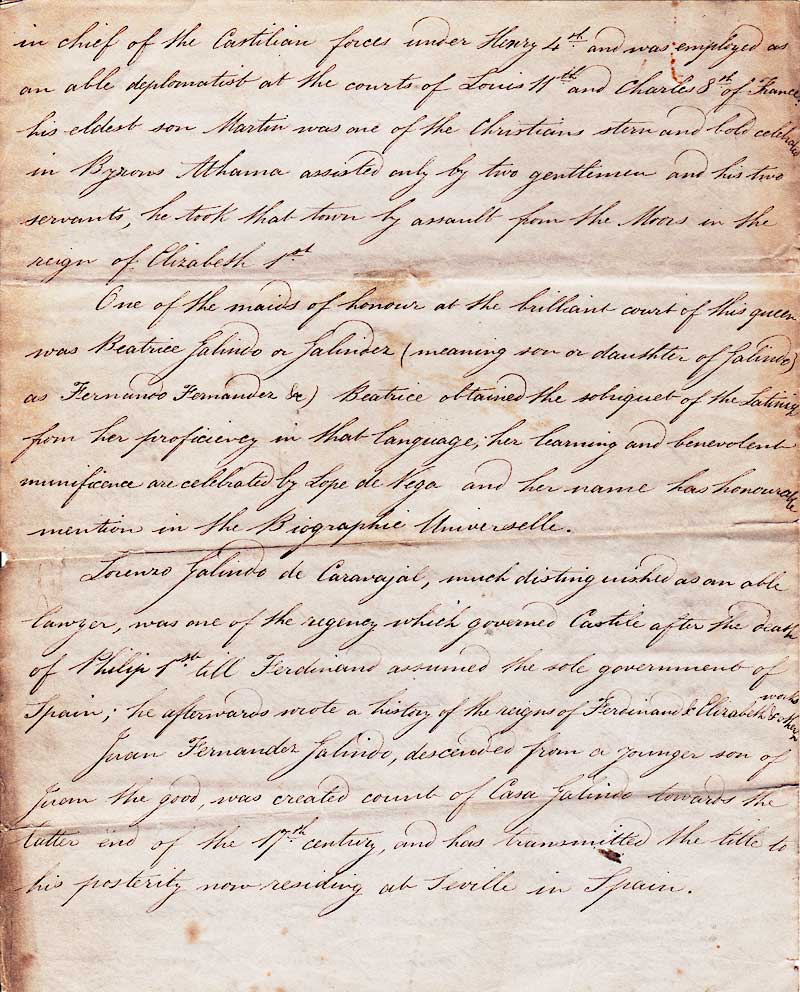 in chief of the Castilian forces under Henry 4th and was employed as
an able deplomatist at the courts of Louis 11th and Charles 8th of France,
his eldest son Martin was one of the Christians stern and bold celebrated
in Byrons Alhama assisted only by two gentlemen and his two
servants, he took that town by assault from the Moors in the
reign of Elizabeth 1st
One of the maids of honour at the brilliant court of this queen
was Beatrice Galindo or Galindez (meaning son or daughter of Galindo)
as Fernando Fernandez &c) Beatrice obtained the sobriquet of the Latiniz
from her proficiency in that language; her learning and benevolent
munificence are celebrated by Lope de Vega and her name has honourable
mention in the Biographie Universelle.
Lorenzo Galindo de Caravajal, much distinguished as an able
lawyer, was one of the regency which governed Castile after the death
of Philip 1st till Ferdinand assumed the sole government of
Spain; he afterwards wrote a history of the reigns of Ferdinand & Elizabeth & other works
Juan Fernandez Galindo, descended from a younger son of
Juan the good, was created count of Casa Galindo towards the
latter end of the 17th century, and has transmitted the title to
his posterity now residing at Seville in Spain.